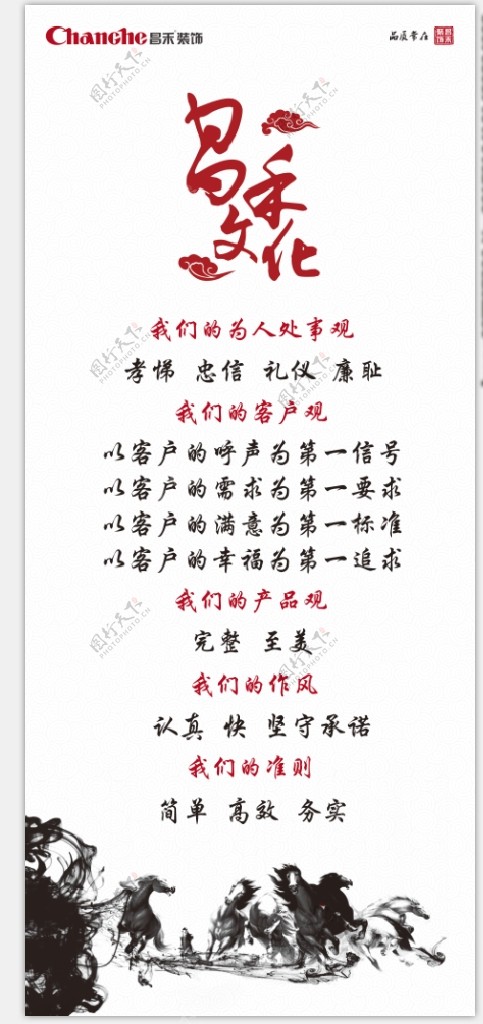 Changhe 昌禾装饰
品质常在
昌禾装饰
昌禾文化
我们的为人处事观
孝悌 忠信 礼仪 廉耻
我们的客户观
以客户的呼声为第一信号
以客户的需求为第一要求
以客户的满意为第一标准
以客户的幸福为第一追求
我们的产品观
完整 至美
我们的作风
认真 快 坚守承诺
我们的准则
简单 高效 务实
图行天下
PHOTOPHOTO.CN